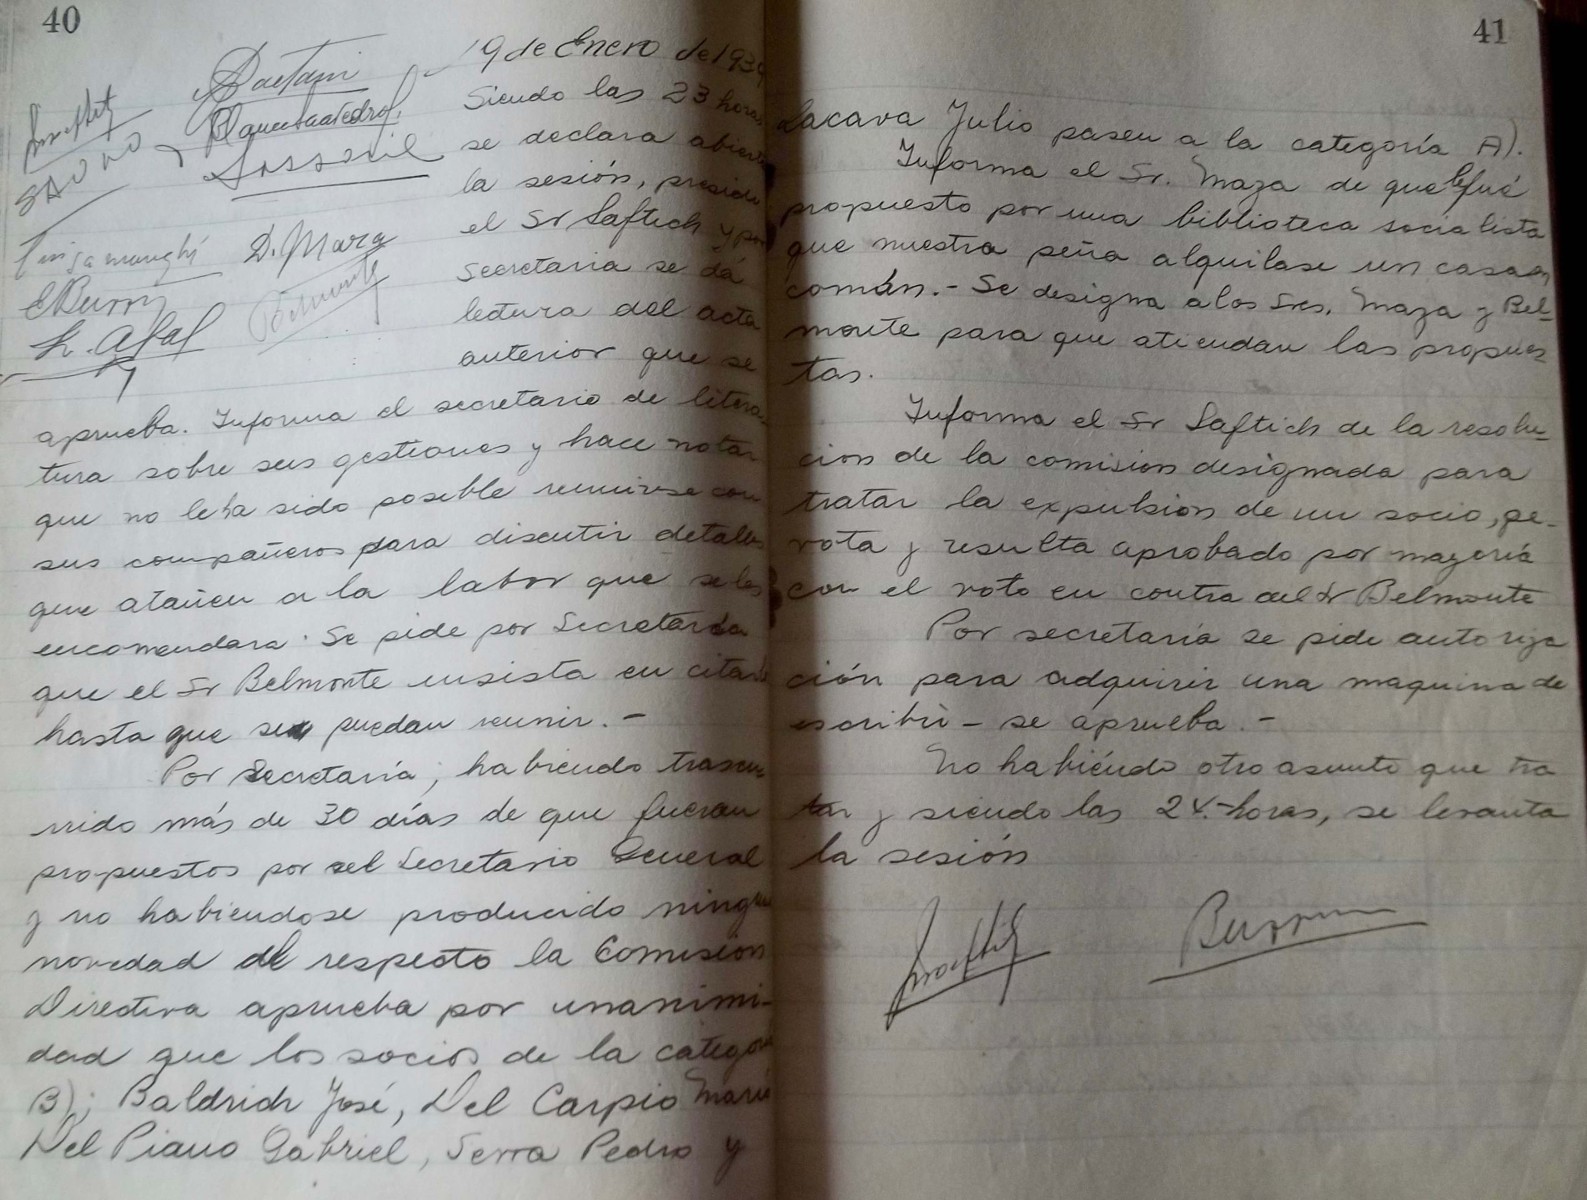 40
Gaetani
19 de Enero de 1939
Siendo las 23 horas
se declara abierta
la sesión, preside
el Sr Saftich y por
secretaria se dá
lectura del acta
anterior que se
D. Maza
E Burry
Belmonte
aprueba. Informa el secretario de litera-
tura sobre sus gestiones y hace notar
que no le ha sido posible reunirse con
sus compañeros para discutir detalles
que atañen a la labor que se les
encomendara. Se pide por Secretaría
que el Sr Belmonte insista en citarlos
hasta que se puedan reunir.-
Por Secretaría, habiendo trascu-
rrido más de 30 días de que fueran
propuestos por el Secretario General
y no habiendose producido ninguna
novedad al respecto la Comisión
Directiva aprueba por unanimi-
dad que los socios de la categoría
B); Baldrich José, Del Carpio Mario
Del Piano Gabriel, Serra Pedro y
41
Lacava Julio pasen a la categoría A).
Informa el Sr. Maza de que le fué
propuesto por una biblioteca socialista
que nuestra peña alquilase un casa en
común.- Se designa a los Srs. Maza y Bel-
monte para que atiendan las propues-
tas.
Informa el Sr Saftich de la resolu-
cion de la comision designada para
tratar la expulsion de un socio, se
vota y resulta aprobado por mayoría
con el voto en contra del Sr Belmonte
Por secretaría se pide autoriza
ción para adquirir una maquina de
escribir - se aprueba.-
No habiéndo otro asunto que tra
tar y siendo las 24.- horas, se levanta
la sesión